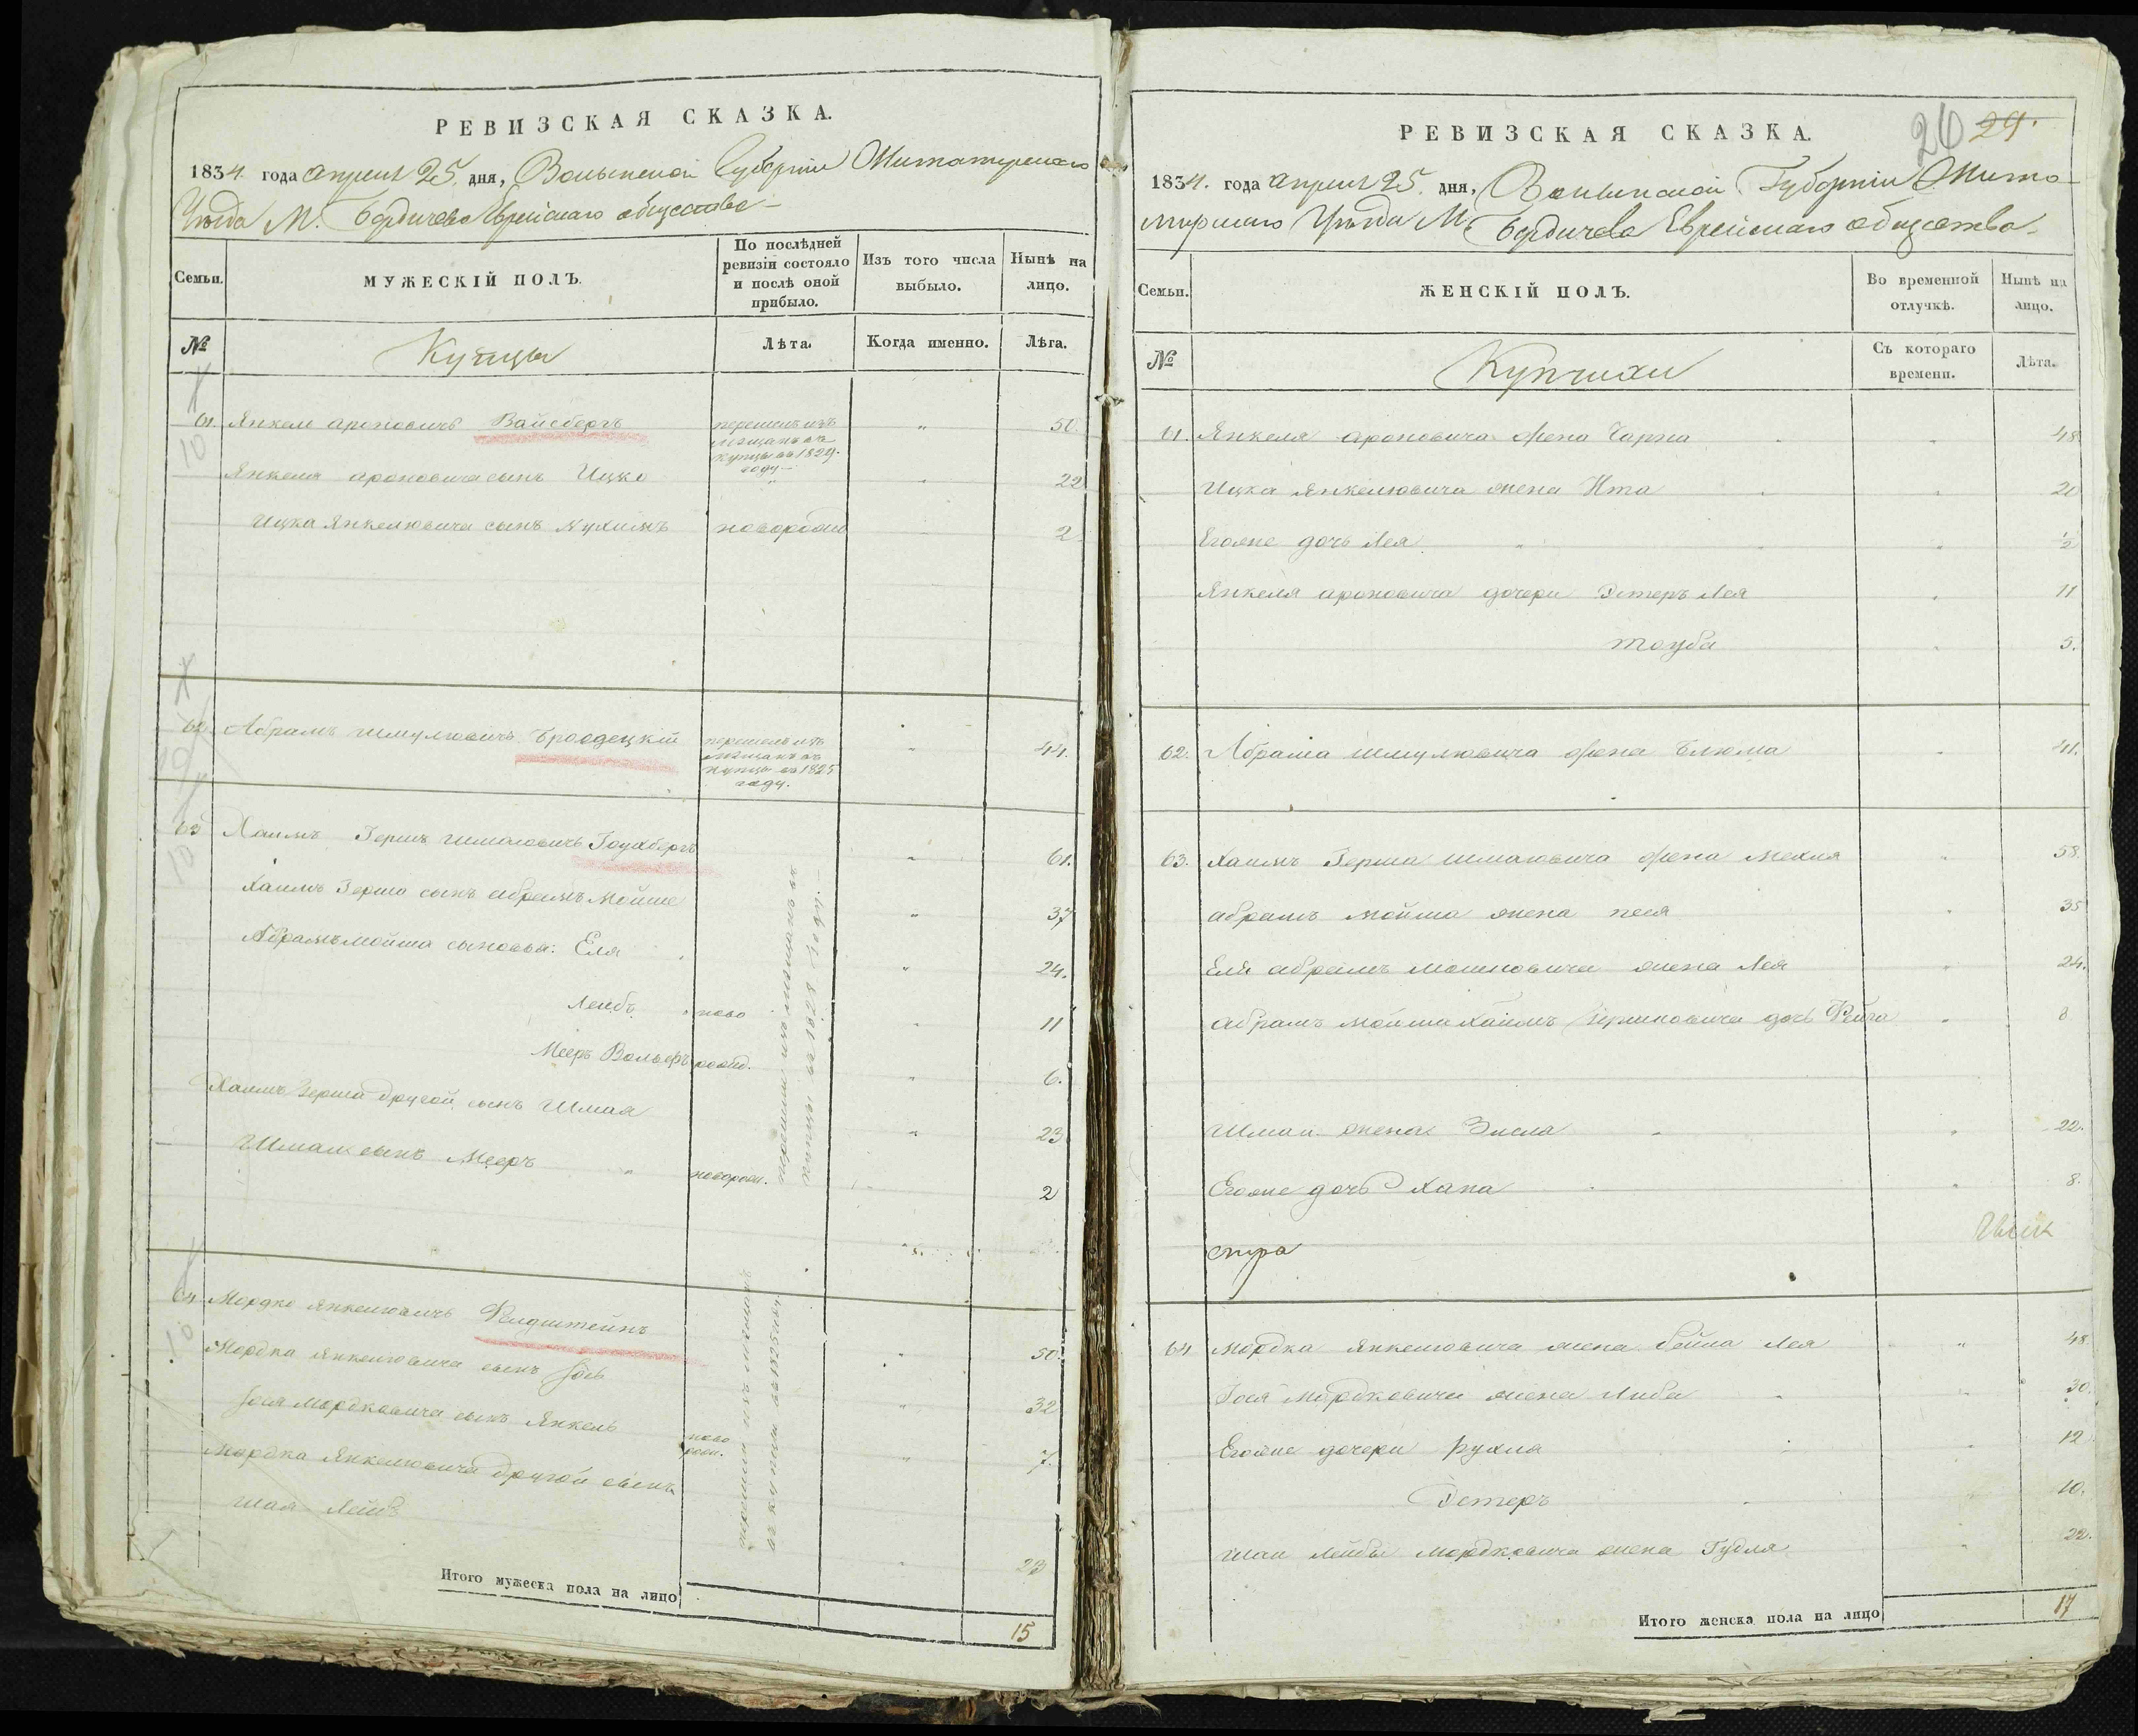 РЕВИЗСКАЯ СКАЗКА.
1834. года апреля 25. дня, Волынской Губернии Житомирского
Уезда М. Бердичева Еврейского общества
Семьи.
МУЖЕСКІЙ ПОЛЪ.
По послѣдней ревизіи состояло и послѣ оной прибыло.
Изъ того числа выбыло.
Нынѣ на лицо.
№
Купцы
Лѣта.
Когда именно.
Лѣта.
61. Янкель Ароновичъ Вайсбергъ перешелъ изъ мещанъ въ купцы въ 1829. году 50.
10
Янкеля Ароновича сынъ Ицко 22
Ицка Янкелювича сынъ Нухимъ новорожд 2
62. Абрамъ Шмулювичъ Бродецкій перешелъ изъ мещанъ въ купцы въ 1825 году. 44.
63 Хаимъ Герш Шмаювичъ 61.
10
Хаимъ Герша сынъ Абрамъ Мойше 37
Абрамъ Мойша сыновья: Еля 24.
Лейбъ ново 11
Мееръ Вольфъ рожд. 6.
Хаимъ Герша другой сынъ Шмая 23
Шмаи сынъ Мееръ новорож. 2
перешли изъ мещанъ въ купцы въ 1828 году.
64 Мордко Янкелювичъ Фелдштейнъ 50.
10
Мордка Янкелювича сынъ Іось 32
Іося Мордковича сынъ Янкель ново рож. 7.
Мордка Янкелювича другой сынъ
Шая Лейбъ 23
перешли изъ мещанъ въ купцы въ 1825 году
Итого мужеска пола на лицо 15
26 29.
РЕВИЗСКАЯ СКАЗКА.
1834. года апреля 25. дня, Волынской Губерніи Жито-
мирского Уезда М. Бердичева Еврейского общества.
Семьи.
ЖЕНСКІЙ ПОЛЪ.
Во временной отлучкѣ.
Нынѣ на лицо.
№
Купчихи
Съ котораго времени.
Лѣта.
61. Янкеля Ароновича жена Чарна 48
Ицка Янкелювича жена Ита 20
Егоже дочь Лея ½
Янкеля Ароновича дочери Эстеръ Лея 11
Тоуба 5.
62. Абрама Шмулювича жена Блюма 41.
63. Хаимъ Герша Шмаювича жена Мехля 58.
Абрамъ Мойша жена Песя 35
Еля Абрамъ Мошковича жена Лея 24.
Абрамъ Мойша Хаимъ Гершковича дочь Фейга 8
Шмаи жена Зисла 22.
Егоже дочь Хана 8.
64 Мордка Янкелювича жена Бейла Лея 48.
Іося Мордковича жена Либа 30.
Егоже дочери Рухля 12
Эстеръ 10.
Шаи Лейбы Мордковича жена Гудля 22.
Итого женска пола на лицо 17